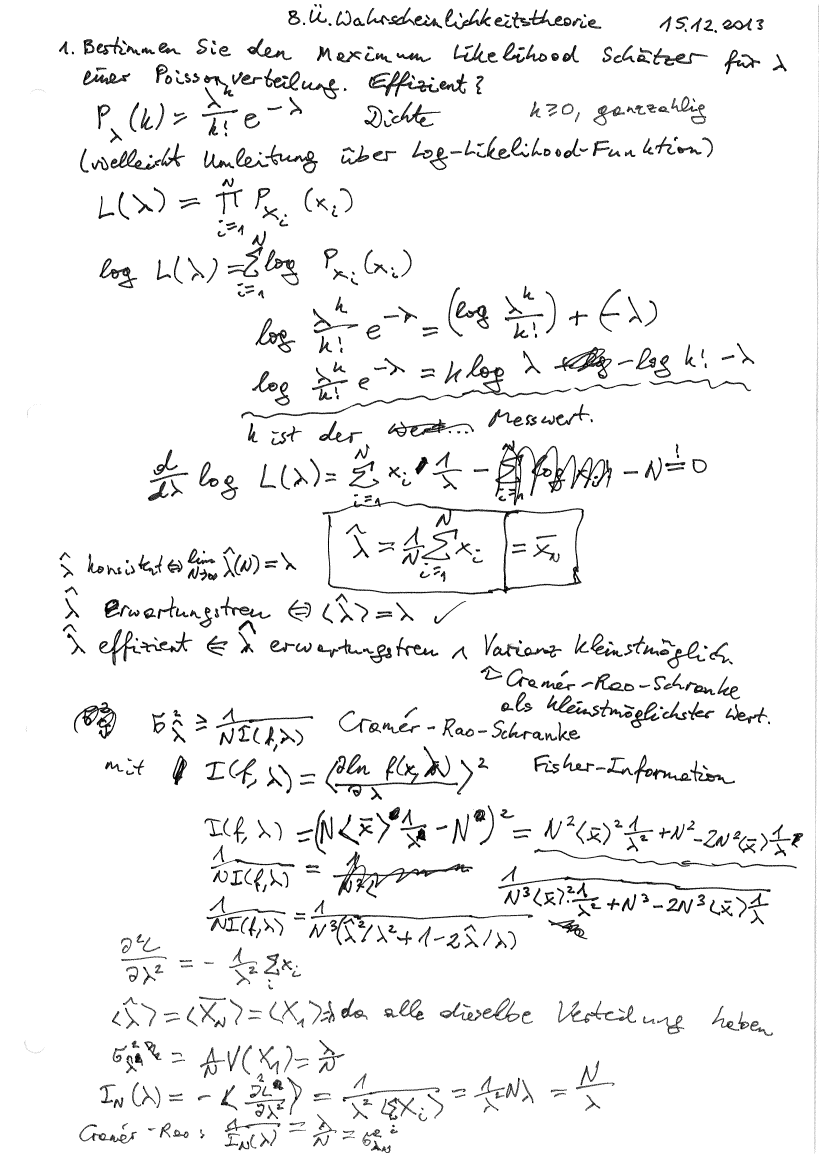 8. Ü. Wahrscheinlichkeitstheorie 15.12.2013
1. Bestimmen Sie den Maximum Likelihood Schätzer für λ
einer Poissonverteilung. Effizient?
P_λ(k) = λ^k/k! e^{-λ} Dichte k≥0, ganzzahlig
(vielleicht Umleitung über Log-Likelihood-Funktion)
L(λ) = ∏_{i=1}^N P_{x_i}(x_i)
log L(λ) = ∑_{i=1}^N log P_{x_i}(x_i)
log λ^k/k! e^{-λ} = (log λ^k/k!) + (-λ)
log λ^k/k! e^{-λ} = k log λ - log k! - λ
k ist der Messwert.
d/dλ log L(λ) = ∑_{i=1}^N x_i · 1/λ - N =! 0
λ̂ = 1/N ∑_{i=1}^N x_i = x̄_N
λ̂ konsistent ⇔ lim_{N→∞} λ̂(N) = λ
λ̂ erwartungstreu ⇔ ⟨λ̂⟩ = λ ✓
λ̂ effizient ⇐ λ̂ erwartungstreu ∧ Varianz kleinstmöglich.
Cramér-Rao-Schranke
als kleinstmöglichster Wert.
σ²_λ̂ ≥ 1/(N I(f,λ)) Cramér-Rao-Schranke
mit I(f,λ) = ⟨∂ln f(x,λ)/∂λ⟩² Fisher-Information
I(f,λ) = (N⟨x̄⟩ 1/λ - N)² = N²⟨x̄⟩² 1/λ² + N² - 2N²⟨x̄⟩ 1/λ
1/(N I(f,λ)) = 1/(N³⟨x̄⟩² · 1/λ² + N³ - 2N³⟨x̄⟩ 1/λ)
1/(N I(f,λ)) = 1/(N³(λ̂²/λ² + 1 - 2λ̂/λ))
∂²L/∂λ² = - 1/λ² ∑_i x_i
⟨λ̂⟩ = ⟨X̄_N⟩ = ⟨X_1⟩ = λ da alle dieselbe Verteilung haben
= 1/N V(X_1) = λ/N
I_N(λ) = -⟨∂²L/∂λ²⟩ = 1/λ² ⟨∑X_i⟩ = 1/λ² Nλ = N/λ
Cramér-Rao: 1/I_N(λ) = λ/N = σ²